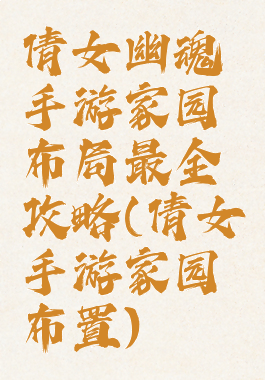 倩女幽魂
手游家园
布局最全
攻略(倩女
手游家园
布置)